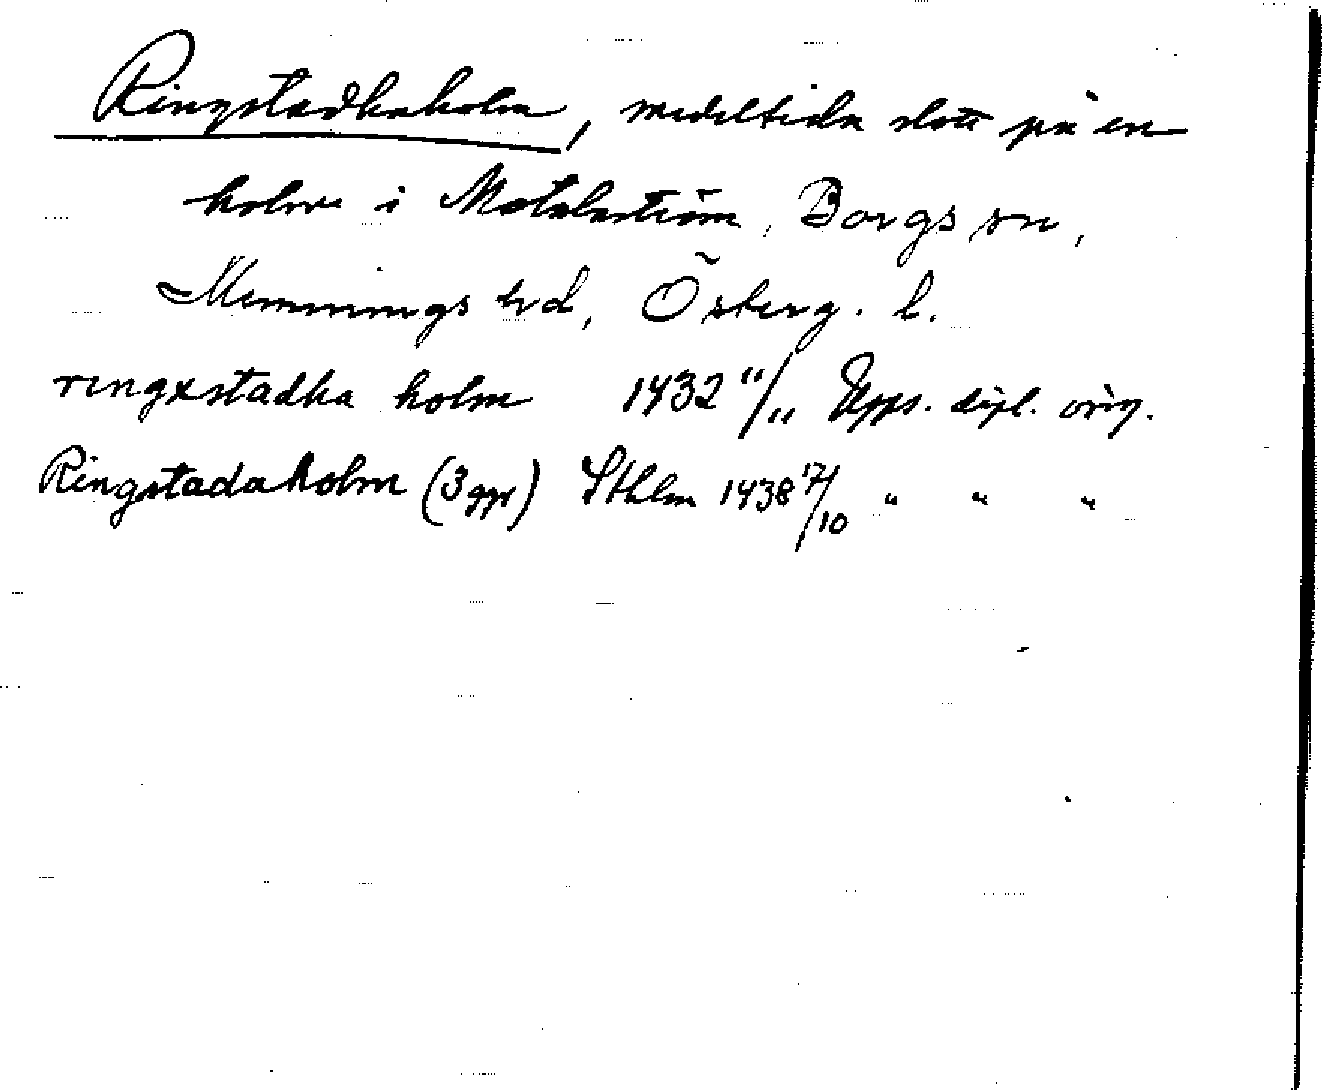 Ringstadhaholm, medeltida slott på en
holme i Motalaström, Borgs sn,
Memmings hd, Österg. l.
ringxstadha holm 1432 11/11 Upps. dipl. orig.
Ringstada holm (3 ggr) Sthlm 1438 17/10 " " "